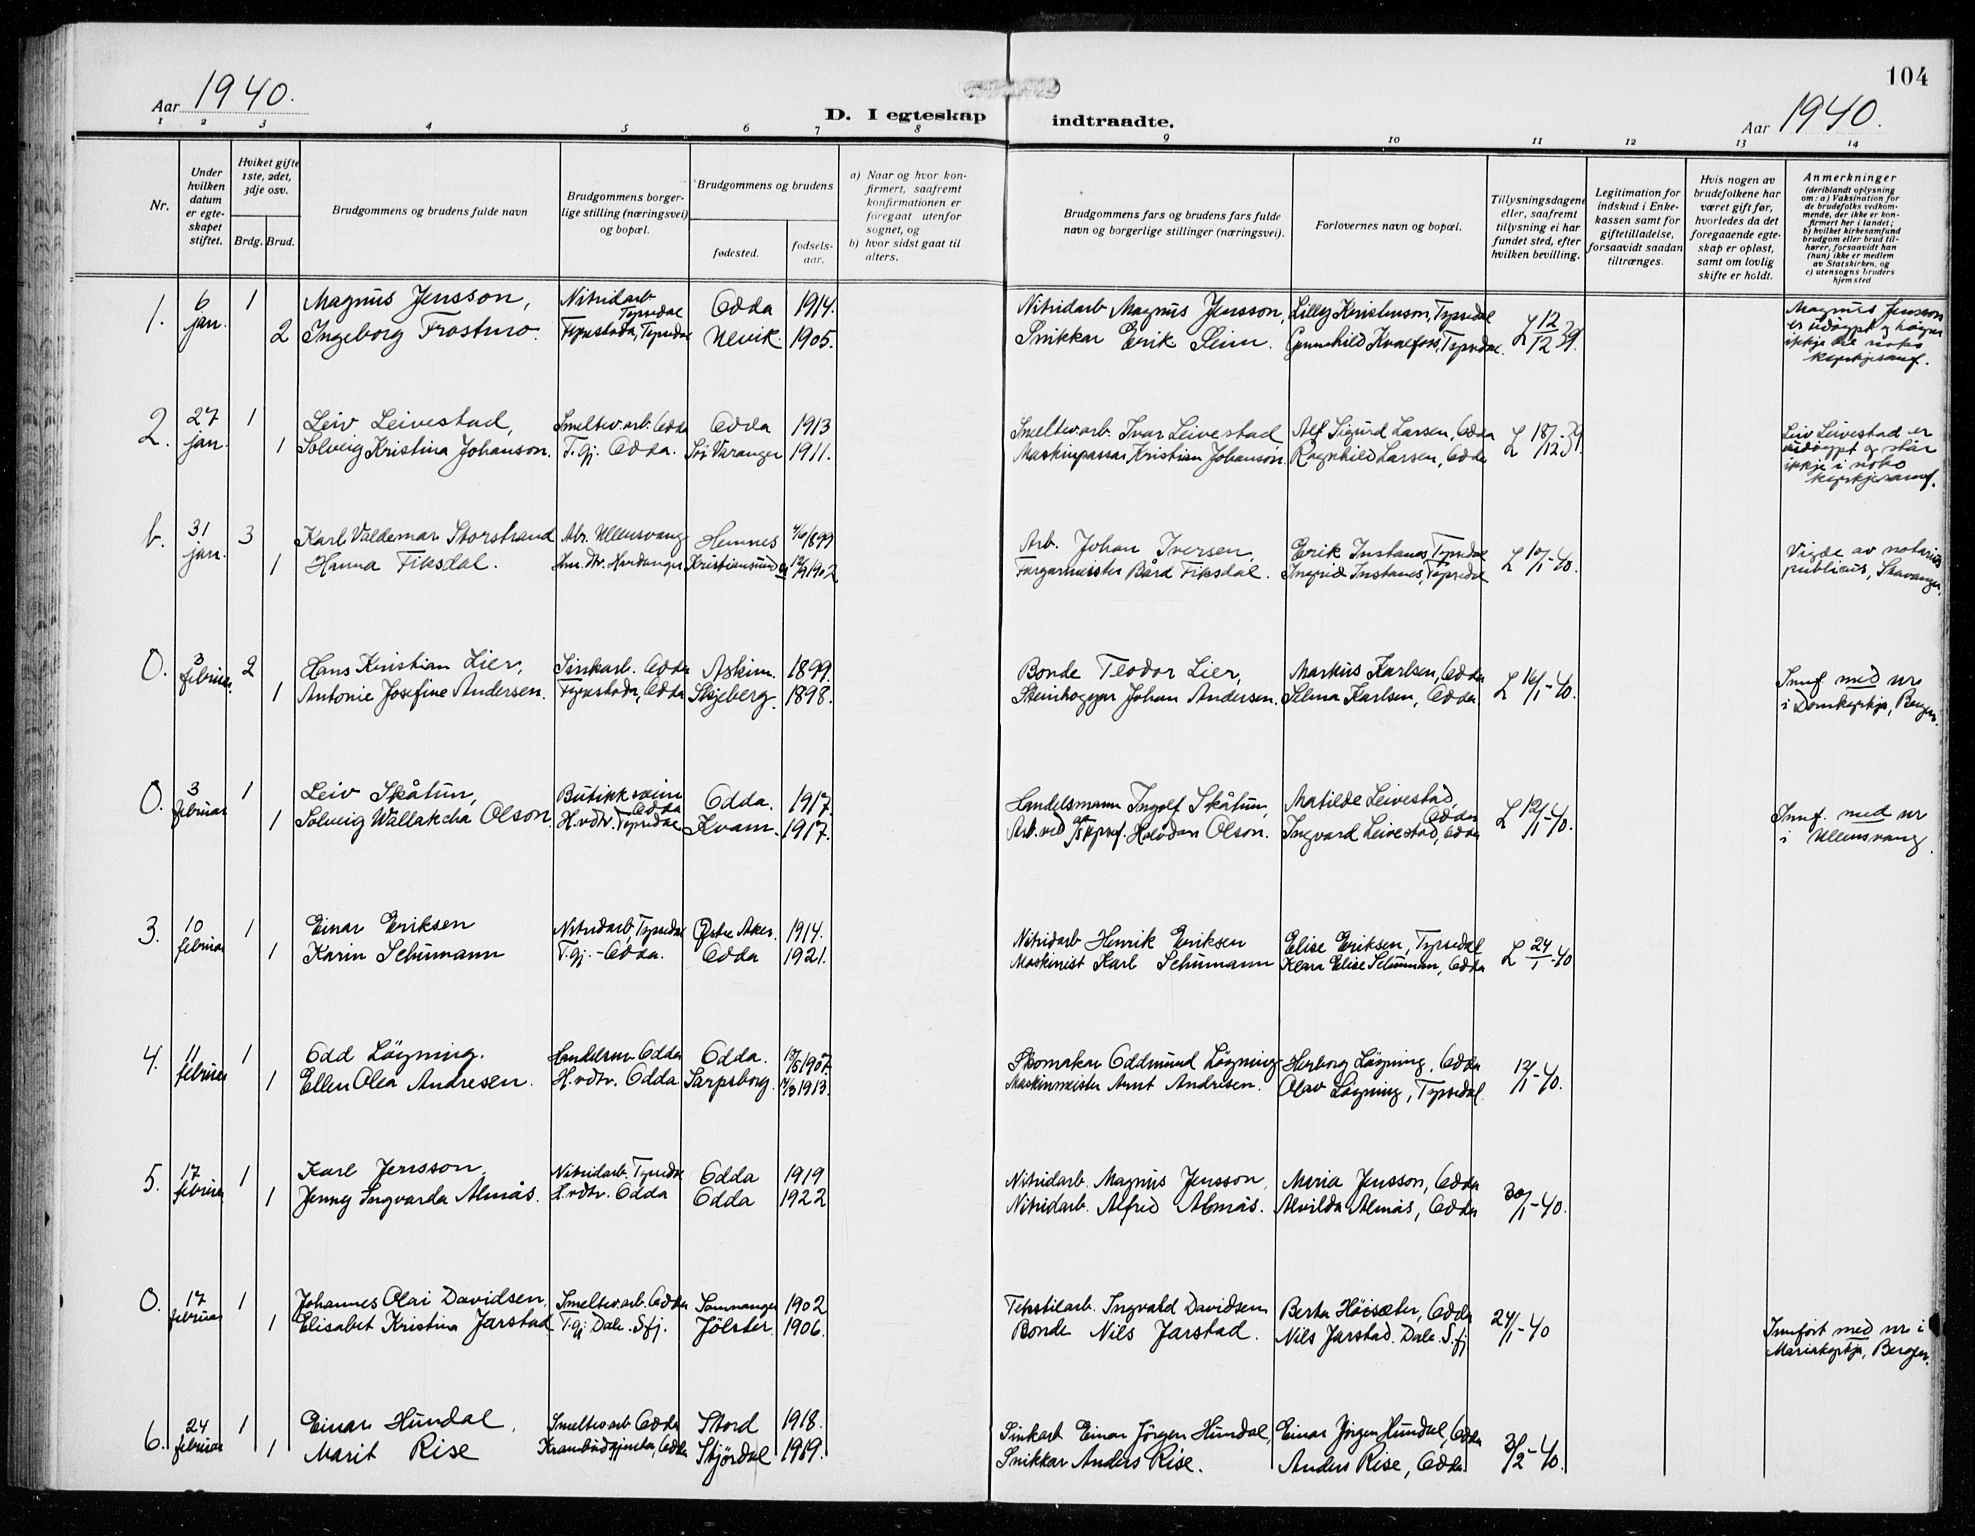 104
Aar 1940.
D. I egteskap indtraadte.
Aar 1940.
1 2 3 4 5 6 7 8 9 10 11 12 13 14
Nr.
Under
hvilken
datum
er egte-
skapet
stiftet.
Hvilket gifte
1ste, 2det,
3dje osv.
Brdg. Brud.
Brudgommens og brudens fulde navn
Brudgommens borger-
lige stilling (næringsvei)
og bopæl.
Brudgommens og brudens
fødested.
fødsels-
aar.
a) Naar og hvor kon-
firmert, saafremt
konfirmationen er
foregaat utenfor
sognet, og
b) hvor sidst gaat til
alters.
Brudgommens fars og brudens fars fulde
navn og borgerlige stillinger (næringsvei).
Forlovernes navn og bopæl.
Tillysningsdagene
eller, saafremt
tillysning ei har
fundet sted, efter
hvilken bevilling.
Legitimation for
indskud i Enke-
kassen samt for
giftetilladelse,
forsaavidt saadan
tiltrænges.
Hvis nogen av
brudefolkene har
været gift før,
hvorledes da det
foregaaende egte-
skap er opløst,
samt om lovlig
skifte er holdt.
Anmerkninger
(deriblandt oplysning
om: a) Vaksination for
de brudefolks vedkom-
mende, der ikke er kon-
firmert her i landet;
b) hvilket kirkesamfund
brudgom eller brud til-
hører, forsaavidt han
(hun) ikke er medlem
av Statskirken, og
c) utensogns bruders
hjemsted
1. 6 jan. 1 Magnus Jensson, Nitridarb Tyssedal Odda 1914. Nitridarb Magnus Jensson, Lilly Kristenson, Tyssedal L 12/12 39.
2 Ingeborg Frostmo. Tyssedal Ulvik. 1905. Snikkar Erik Seim. Gunnhild Kvalfoss, Tyssedal.
Magnus Jensson
er udøypt og høyrer
ikkje til noko
kyrkjesamf.
2. 27 jan. 1 Leiv Leivestad, Smeltev.arb. Odda Odda 1913 Smeltev.arb Ivar Leivestad Alf Sigurd Larsen, Odda L 18/12-39.
1 Solveig Kristina Johanson. T.gj. Odda. Sør Varanger 1911. Maskinpassar Kristian Johanson. Ragnhild Larsen, Odda
Leiv Leivestad er
udøypt og står
ikkje i noko
kyrkjesamf.
b. 31 jan. 3 Karl Valdemar Storstrand Arb. Ullensvang Hemnes 4/6 1899 Arb. Johan Iversen Erik Instanes, Tyssedal L 10/1-40.
1 Hanna Fiksdal. Kristiansund 1902 Fargarmeister Bård Fiksdal. Ingrid Instanes, Tyssedal
Vigde av notarius
publicus, Stavanger.
0. 3 februar. 2 Hans Kristian Lier, Sinkarb. Odda Askim. 1899. Bonde Teodor Lier, Markus Karlsen, Odda L 16/1-40.
1 Antonie Josefine Andersen. Odda Skjeberg. 1898. Steinhoggar Johan Andersen. Selma Karlsen, Odda.
Innf. med nr
i Domkyrkja, Bergen.
0. 3 februar 1 Leiv Skåtun, Butikksvein Odda Odda. 1917. Handelsmann Ingolf Skåtun, Matilde Leivestad, Odda L 12/1-40.
1 Solveig Wallakcha Olson H.vdtr. Tyssedal Kvam. 1917. Arb. ved Halvdan Olson. Ingvard Leivestad, Odda
Innf. med nr
i Ullensvang.
3. 10 februar 1 Einar Eriksen Nitridarb, Tyssedal Østre Aker. 1914. Nitridarb Henrik Eriksen Elise Eriksen, Tyssedal L 24/1-40
1 Karin Schumann T.gj. - Odda. Odda 1921. Maskinist Karl Schumann Klara Elise Schuman, Odda
4. 11 februar 1 Odd Løyning. Handelsm Odda Odda. 18/5 1907. Skomakar Oddmund Løyning Herborg Løyning, Odda 12/1-40.
1 Ellen Olea Andresen. H.vdtr. Odda Sarpsborg. 1913. Maskinmeister Arnt Andresen. Olav Løyning, Tyssedal.
5. 17 februar 1 Karl Jensson, Nitridarb. Tyssedal Odda 1919 Nitridarb. Magnus Jensson, Maria Jensson, Odda 30/1-40.
1 Jenny Ingvarda Almås. H.vdtr. Odda Odda 1922 Nitridarb. Alfred Almås. Alvilda Almås, Odda
0. 17 februar 1 Johannes Olai Davidsen, Smeltev.arb. Odda Samnanger 1902 Tekstilarb. Ingvald Davidsen Berta Høisæter, Odda 24/1-40
1 Elisabet Kristina Jarstad T.gj Dale. Sfj. Jølster. 1906. Bonde Nils Jarstad. Nils Jarstad. Dale. S.fj
Innført med nr i
Mariakyrkja, Bergen.
6. 24 februar 1 Einar Hundal. Smeltev.arb Odda Stord 1918. Sinkarb Einar Jørgen Hundal, Einar Jørgen Hundal, Odda 3/2-40.
1 Marit Rise Krambudgjenta, Odda Stjørdal 1919. Snikkar Anders Rise. Anders Rise, Odda.